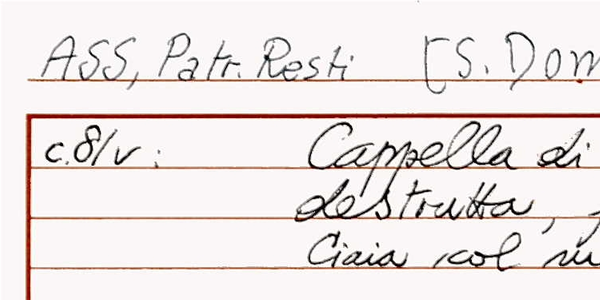 ASS, Patr. Resti [S. Dom
c. 81v: Cappella di
destrutta,
Ciaia, col